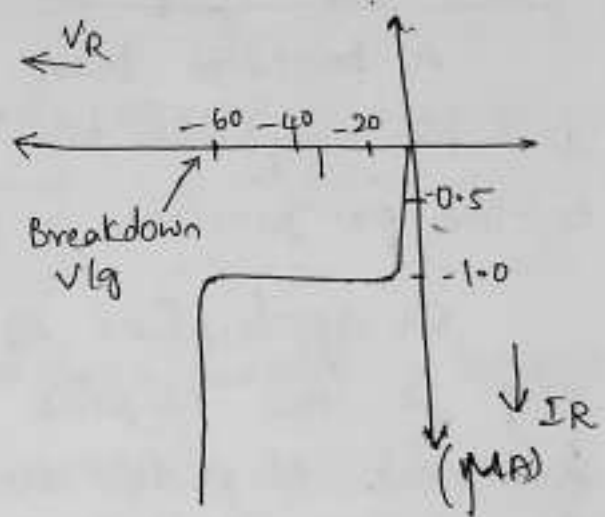 VR
-60 -40 -20
-0.5
Breakdown
Vlg
-1.0
IR
(μA)